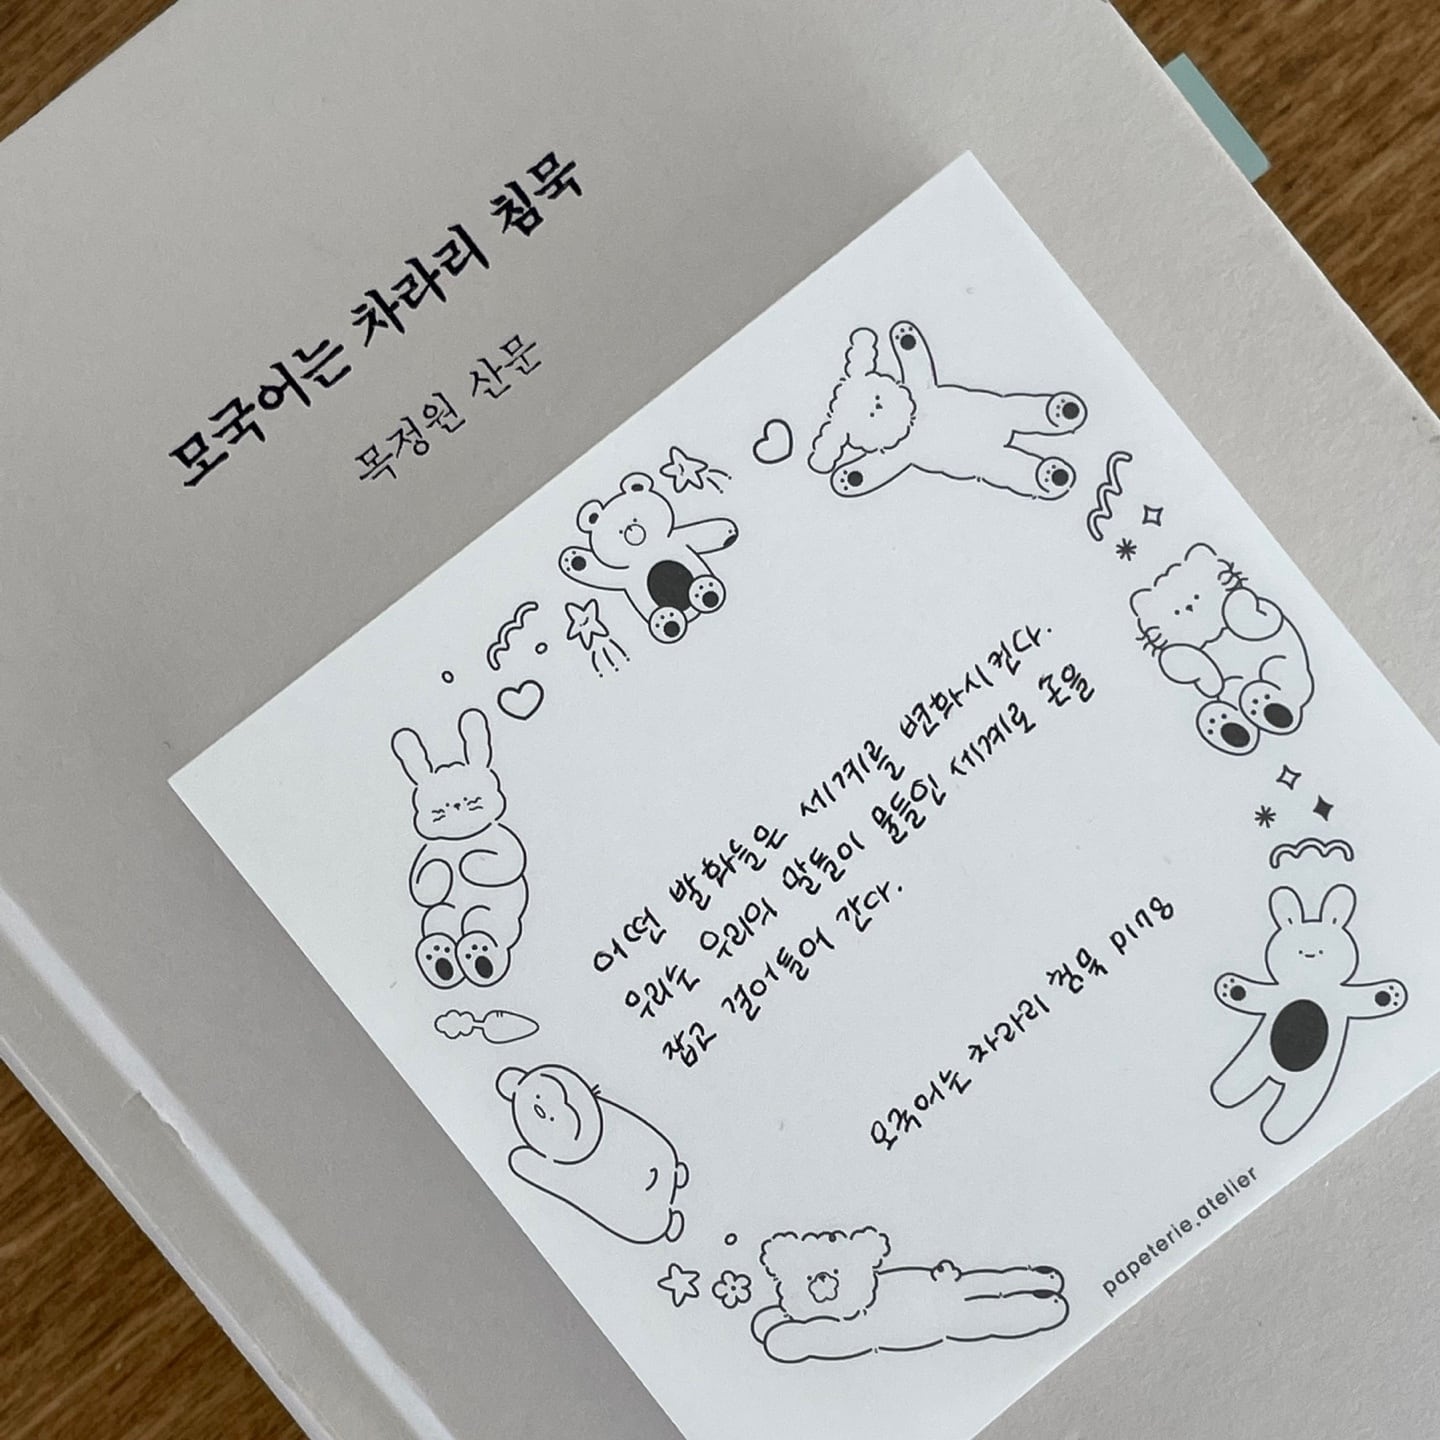 모국어는 차라리 침묵
목정원 산문
어떤 발화들은 세계를 변화시킨다.
우리는 우리의 말들이 물들인 세계로 손을
잡고 걸어들어 간다.
모국어는 차라리 침묵 P178
papeterie.atelier